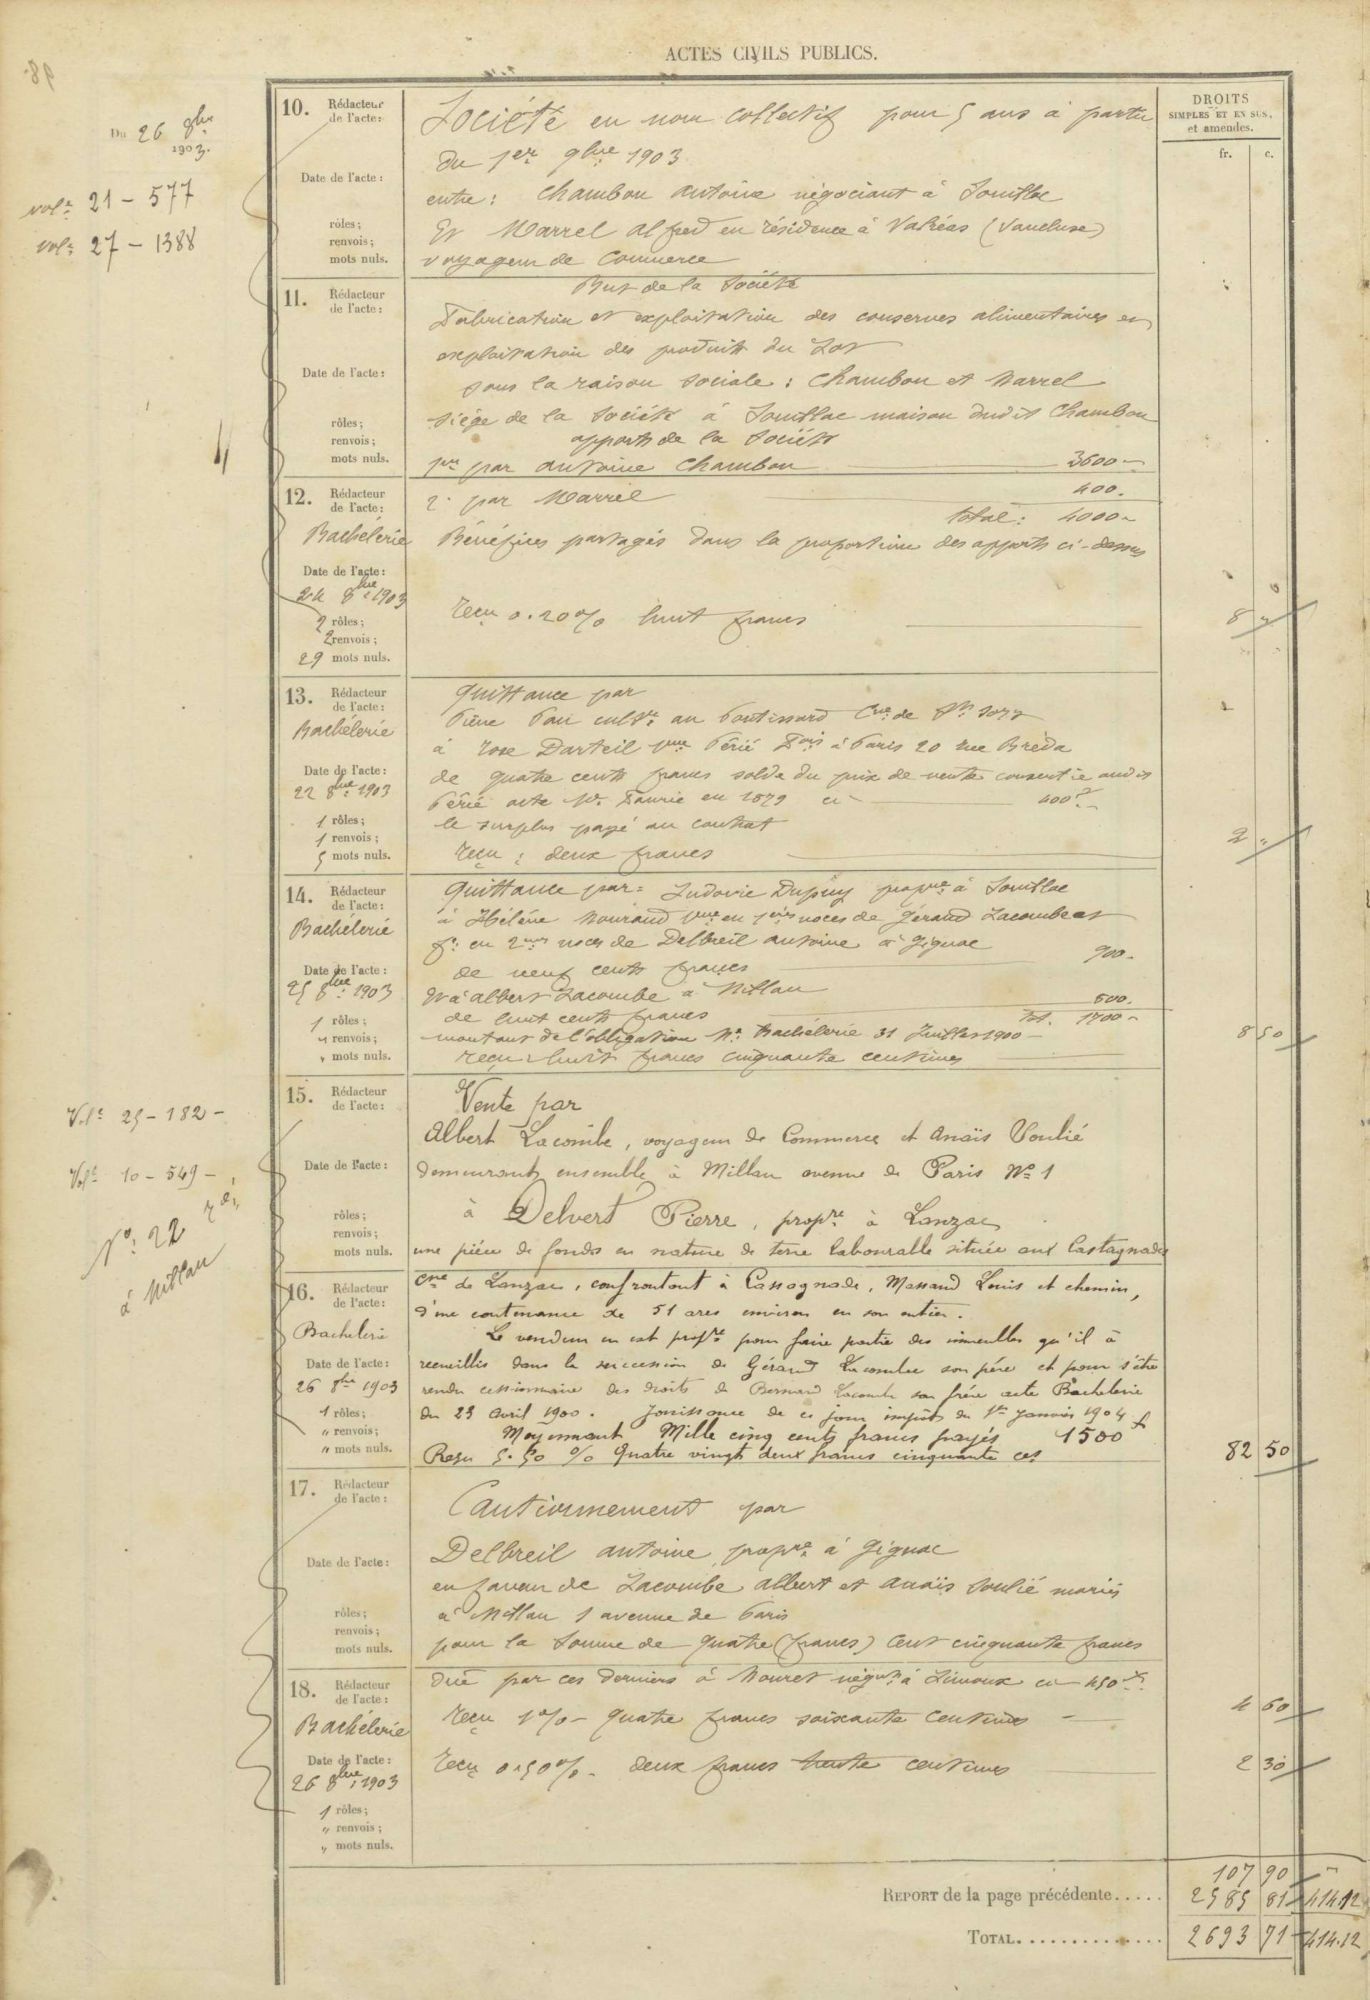 ACTES CIVILS PUBLICS.
Du 26 8bre
1903.
vole 21 - 577
vole 27 - 1388
DROITS
SIMPLES ET EN SUS,
et amendes.
fr. c.
10. Rédacteur
de l'acte:
Date de l'acte:
rôles;
renvois;
mots nuls.
Société en nom collectif pour 5 ans à partir
du 1er 9bre 1903
entre: Chambon Antoine négociant à Souillac
Et Marrel Alfred en résidence à Valréas (Vaucluse)
voyageur de Commerce
11. Rédacteur
de l'acte:
Date de l'acte:
rôles;
renvois;
mots nuls.
But de la Société
Fabrication et exploitation des conserves alimentaires et
exploitation des produits du Lot
sous la raison sociale: Chambon et Marrel
siège de la Société à Souillac maison dudit Chambon
apports de la Société
par Antoine Chambon 3600 -
12. Rédacteur
de l'acte:
Bachélerie
Date de l'acte:
24 8bre 1903
2 rôles;
2 renvois;
29 mots nuls.
2. par Marrel 400.
total: 4000 -
Bénéfices partagés dans la proportion des apports ci-dessus
reçu 0.20 % huit francs 8 "
13. Rédacteur
de l'acte:
Bachélerie
Date de l'acte:
22 8bre 1903
1 rôles;
1 renvois;
5 mots nuls.
Quittance par
au Cne de St Sozy
à Rose Darteil à Paris 20 rue Bréda
de quatre cents francs solde du prix de vente consentie audit
acte Me Faurie en 1879 ci - 400 f
le surplus payé au contrat
reçu: deux francs 2 "
14. Rédacteur
de l'acte:
Bachélerie
Date de l'acte:
25 8bre 1903
1 rôles;
" renvois;
" mots nuls.
Quittance par = Ludovic Dupuy propre à Souillac
à Hélène Mouraud vve en 1ères noces de Géraud Lacombe et
fe en 2mes noces de Delbreil Antoine à Gignac
de neuf cents francs 900 -
Et à Albert Lacombe à Millau
de huit cents francs 800.
tot. 1700 -
montant de l'obligation Me Bachélerie 31 Juillet 1900 -
reçu: huit francs cinquante centimes 8 50
Vole 25 - 182 -
Vole 10 - 549 -
No: 22
à Millau
15. Rédacteur
de l'acte:
Date de l'acte:
rôles;
renvois;
mots nuls.
Vente par
Albert Lacombe, voyageur de Commerce et Anaïs Soulié
demeurants ensemble à Millau avenue de Paris No 1
à Delvert Pierre, propre à Lanzac
une pièce de fonds en nature de terre labourable située aux Castagnades
16. Rédacteur
de l'acte:
Bachelerie
Date de l'acte:
26 8bre 1903
1 rôles;
" renvois;
" mots nuls.
Cne de Lanzac, confrontant à Cassagnade, Massaud Louis et chemin,
d'une contenance de 51 ares environ en son entier.
Le vendeur en est propre pour faire partie des immeubles qu'il a
recueillis dans la succession de Géraud Lacombe son père et pour s'être
rendu cessionnaire des droits de Bernard Lacombe son frère acte Bachelerie
du 23 Avril 1900. Jouissance de ce jour impôts du 1er Janvier 1904
Moyennant Mille cinq cents francs payés 1500 f
Reçu 5.50 % Quatre vingt deux francs cinquante ces 82 50
17. Rédacteur
de l'acte:
Date de l'acte:
rôles;
renvois;
mots nuls.
Cautionnement par
Delbreil Antoine, propre à Gignac
en faveur de Lacombe Albert et Anaïs Soulié mariés
à Millau 1 avenue de Paris
pour la somme de quatre (francs) cent cinquante francs
18. Rédacteur
de l'acte:
Bachélerie
Date de l'acte:
26 8bre 1903
1 rôles;
" renvois;
" mots nuls.
due par ces derniers à Mouret négt à Limoux ci - 450 f
reçu 1 % - quatre francs soixante centimes 4 60
reçu 0.50 % - deux francs trente centimes 2 30
107 90 "
REPORT de la page précédente..... 2585 81 414.12
TOTAL............... 2693 71 414.12